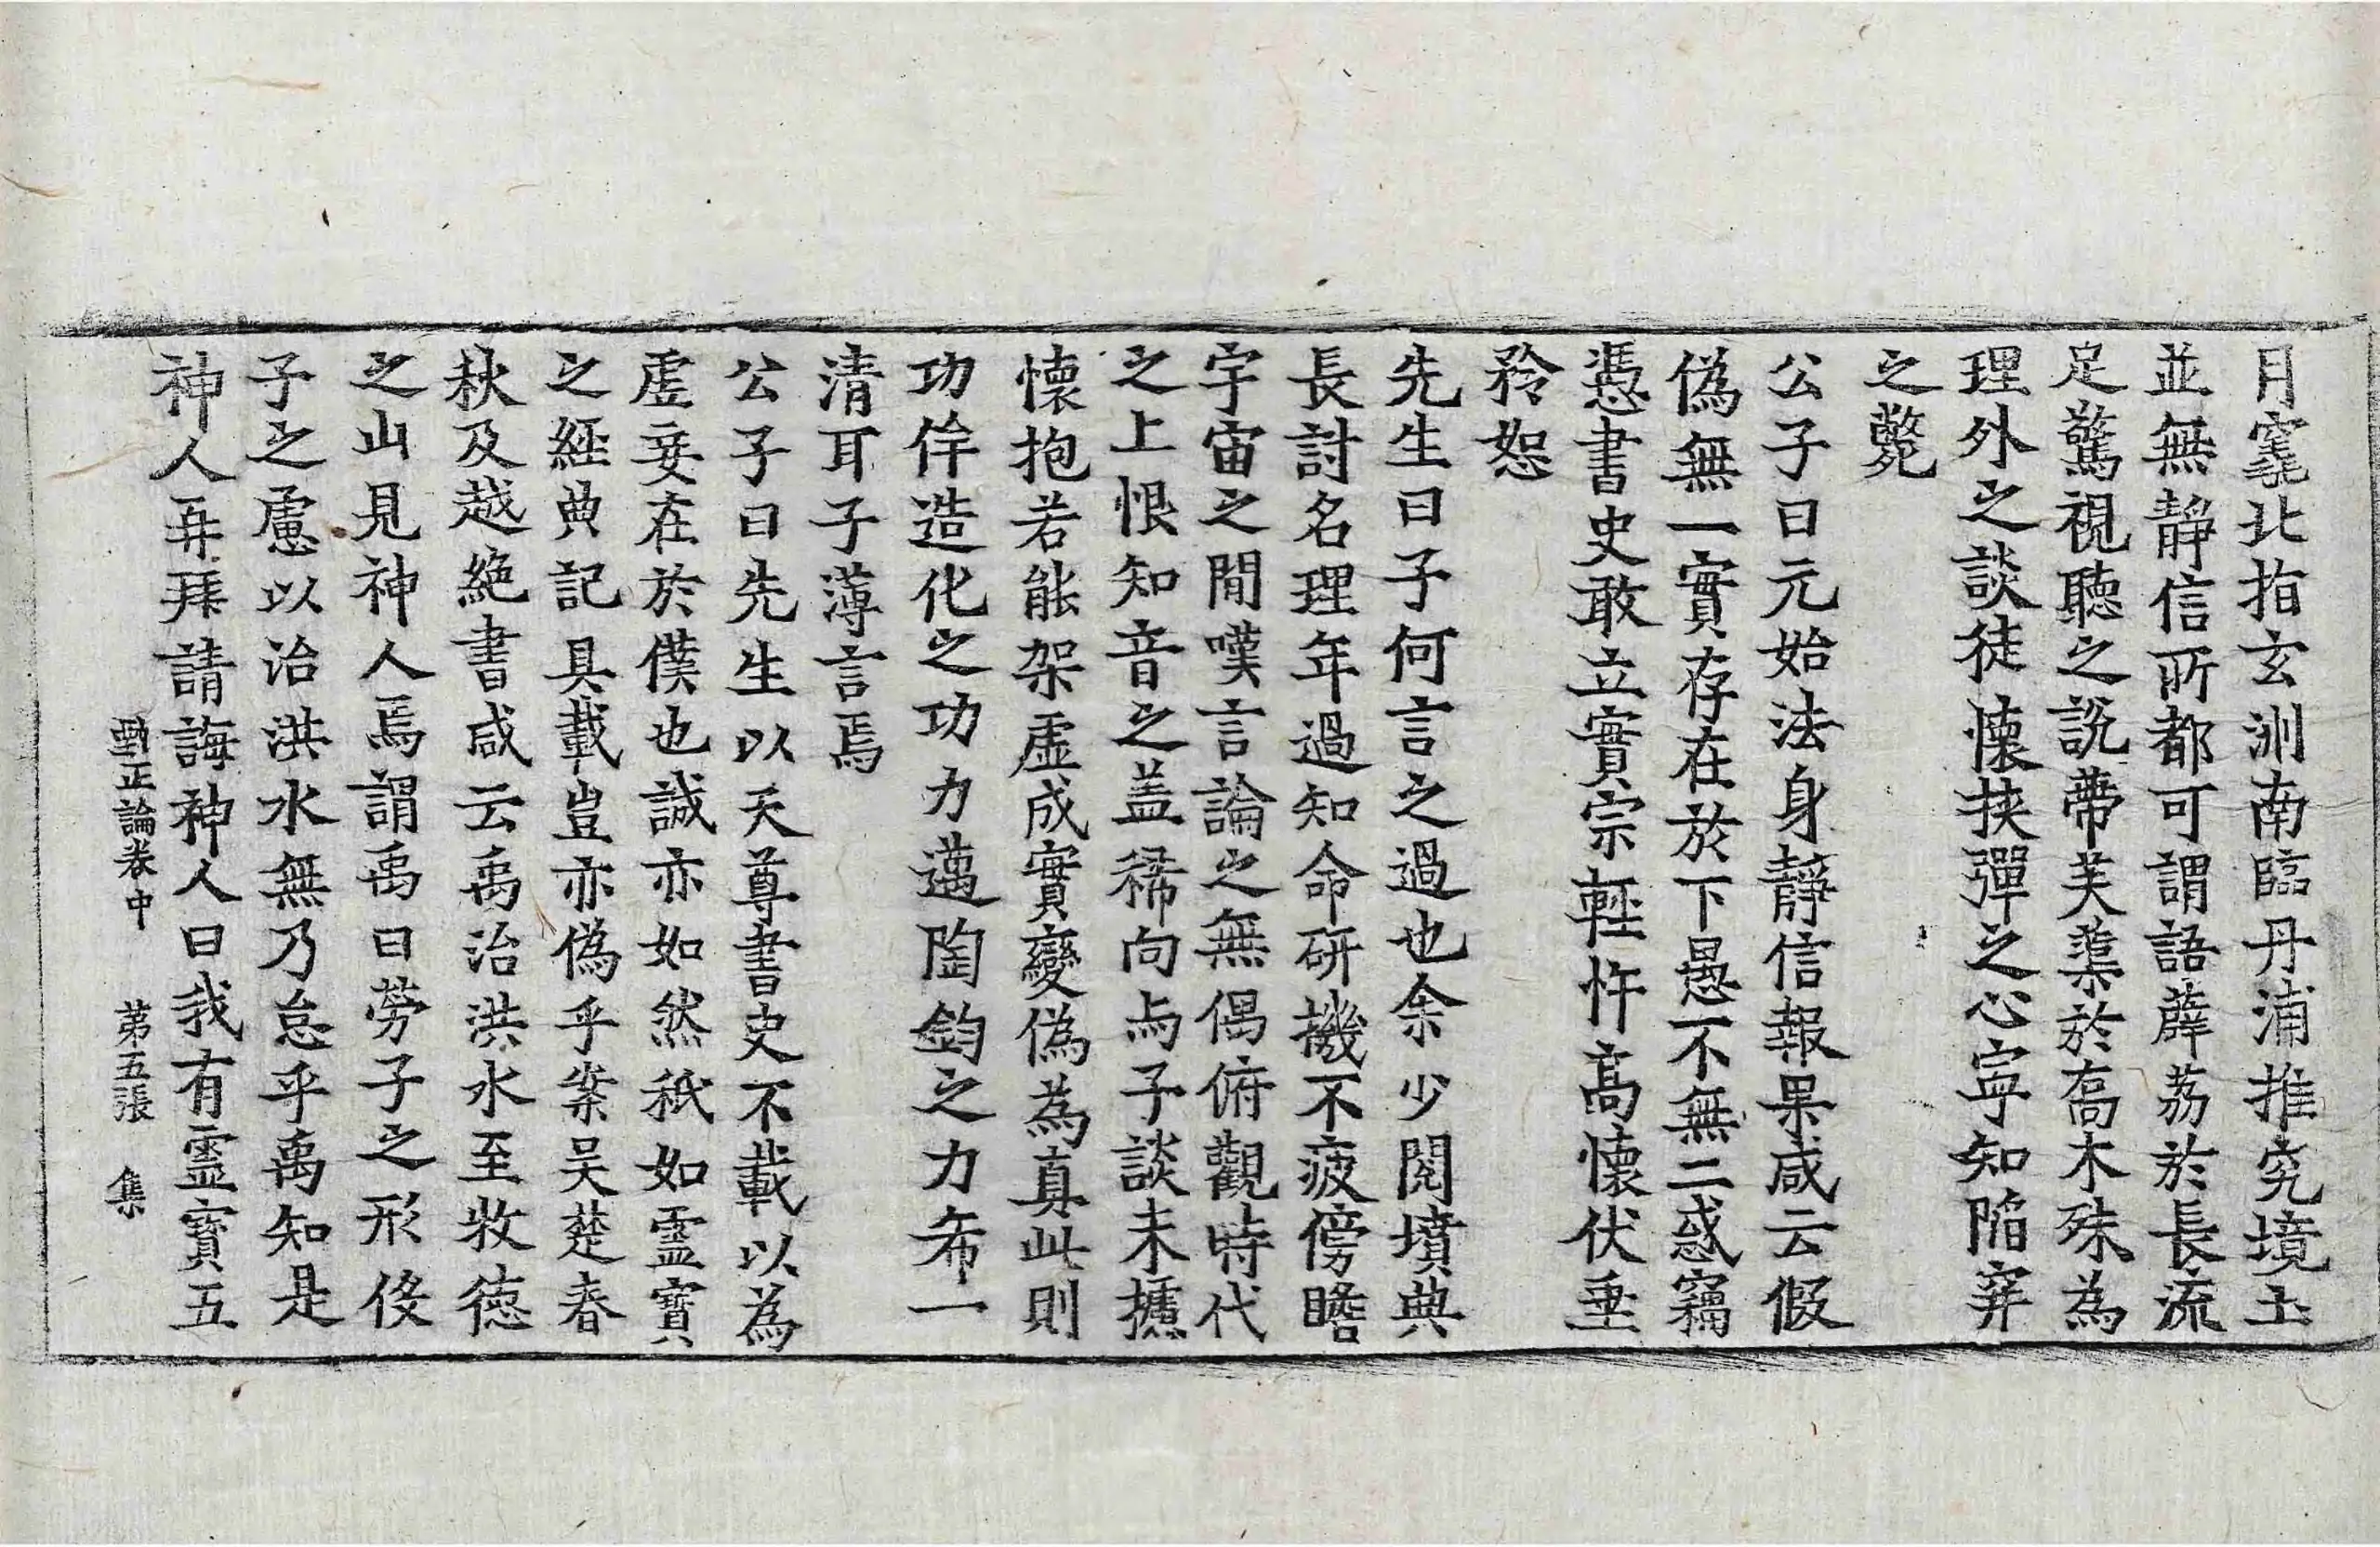 月窟北指玄洲南臨丹浦推究境土
並無靜信所都可謂語薜荔於長流
足驚視聽之說帶芙蕖於高木殊為
理外之談徒懷挾彈之心寧知陷穽
之斃
公子曰元始法身靜信報果咸云假
偽無一實存在於下愚不無二惑竊
憑書史敢立實宗輕忤高懷伏垂
矜恕
先生曰子何言之過也余少閱墳典
長討名理年過知命研機不疲傍瞻
宇宙之閒嘆言論之無偶俯觀時代
之上恨知音之蓋稀向与子談未攄
懷抱若能架虛成實變偽為真此則
功侔造化之功力邁陶鈞之力希一
清耳子薄言焉
公子曰先生以天尊書史不載以為
虛妄在於僕也誠亦如然秖如靈寶
之經典記具載豈亦偽乎案吴楚春
秋及越絕書咸云禹治洪水至牧德
之山見神人焉謂禹曰勞子之形役
子之慮以治洪水無乃怠乎禹知是
神人再拜請誨神人曰我有靈寶五
甄正論卷中 第五張 集